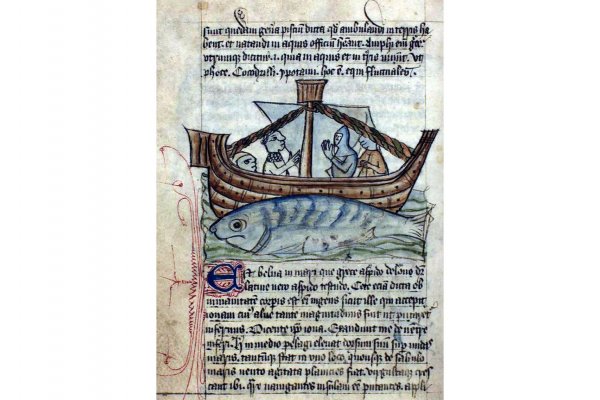 sunt quedam gen̄a pisciū dicta qđ ambulandi in terris ha
bent. et natandi in aquis officiū hēant. Amphi em̄ gre
utrumque dicitur .i. quia in aquis et in tr̄is uiuūt. Vt
phoce. Cocodrilli. ypotami. hoc ē. equi fluctuales.
Est belua in mari que grece aspido delone dr̄
latine uero aspido testudo. Cete etiā dicta ob
inmanitatem corpis est eī ingens sicut ille qui excepit
ionam cuiꝰ aluꝰ tante magnitudinis fuit ut putaret
infernus. Dicente ip̄o iona. Exaudiuit me de uentre
inferi. in medio pelagi eleuat dorsum suū sup undas
maris. tantūque stat in uno loco. quousque de sabulo
maris uento agitata planicies fiat.
cant ibi. nauigantes insulam eē putantes. appli